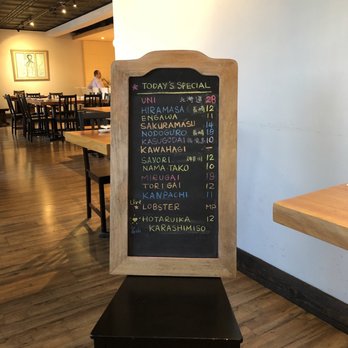 TODAY'S SPECIAL
UNI 北海道 28
HIRAMASA 長崎 12
ENGAWA 11
SAKURAMASU 14
NODOGURO 長崎 18
KASUGODAI 10
KAWAHAGI -
SAYORI 12
NAMA TAKO 16
MIRUGAI 18
TORIGAI 12
KANPACHI 11
LOBSTER MP
HOTARUIKA 12
KARASHIMISO